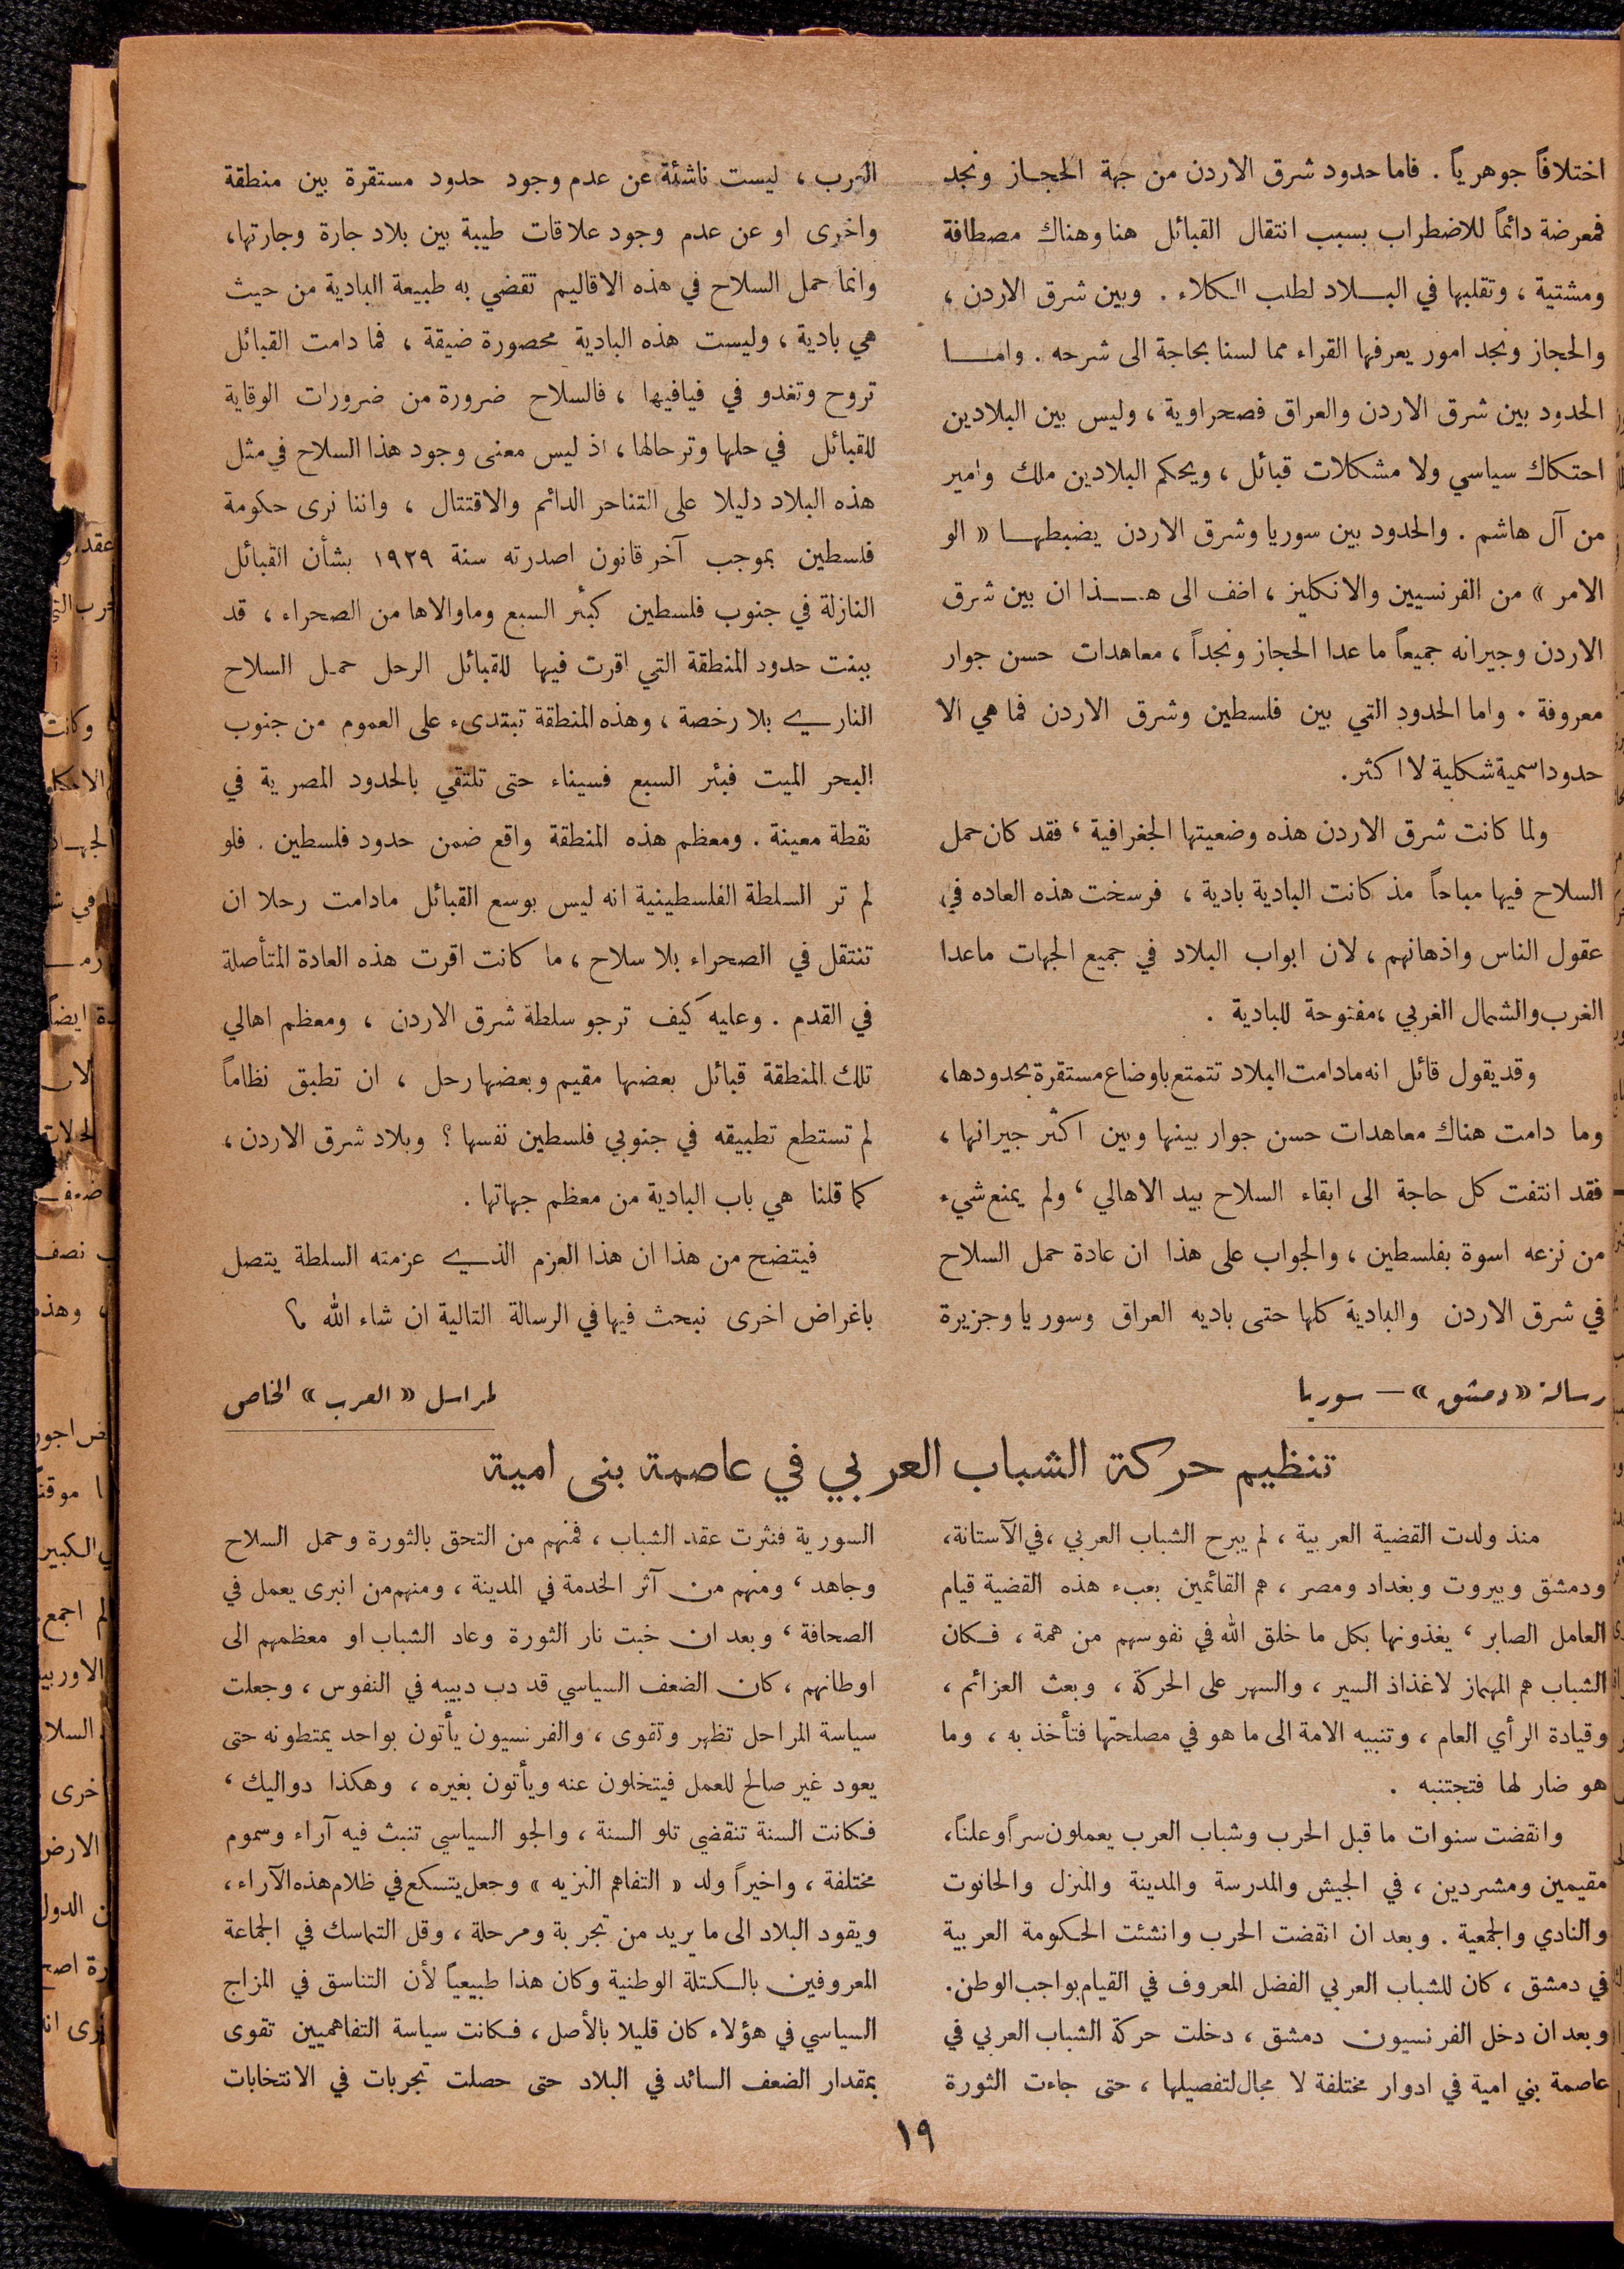 اختلافاً جوهرياً . فاما حدود شرق الاردن من جهة الحجاز ونجد
فمعرضة دائماً للاضطراب بسبب انتقال القبائل هنا وهناك مصطافة
ومشتية ، وتقلبها في البلاد لطلب الكلاء . وبين شرق الاردن ،
والحجاز ونجد امور يعرفها القراء مما لسنا بحاجة الى شرحه . واما
الحدود بين شرق الاردن والعراق فصحراوية ، وليس بين البلادين
احتكاك سياسي ولا مشكلات قبائل ، ويحكم البلادين ملك وامير
من آل هاشم . والحدود بين سوريا وشرق الاردن يضبطها « الو
الامر » من الفرنسيين والانكليز ، اضف الى هذا ان بين شرق
الاردن وجيرانه جميعاً ما عدا الحجاز ونجداً ، معاهدات حسن جوار
معروفة . واما الحدود التي بين فلسطين وشرق الاردن فما هي الا
حدود اسمية شكلية لا اكثر .
ولما كانت شرق الاردن هذه وضعيتها الجغرافية ، فقد كان حمل
السلاح فيها مباحاً مذ كانت البادية بادية ، فرسخت هذه العاده في
عقول الناس واذهانهم ، لان ابواب البلاد في جميع الجهات ماعدا
الغرب والشمال الغربي ، مفتوحة للبادية .
وقد يقول قائل انه مادامت البلاد تتمتع باوضاع مستقرة بحدودها ،
وما دامت هناك معاهدات حسن جوار بينها وبين اكثر جيرانها ،
فقد انتفت كل حاجة الى ابقاء السلاح بيد الاهالي ، ولم يمنع شيء
من نزعه اسوة بفلسطين ، والجواب على هذا ان عادة حمل السلاح
في شرق الاردن والبادية كلها حتى باديه العراق وسوريا وجزيرة
العرب ، ليست ناشئة عن عدم وجود حدود مستقرة بين منطقة
واخرى او عن عدم وجود علاقات طيبة بين بلاد جارة وجارتها ،
وانما حمل السلاح في هذه الاقاليم تقضي به طبيعة البادية من حيث
هي بادية ، وليست هذه البادية محصورة ضيقة ، فما دامت القبائل
تروح وتغدو في فيافيها ، فالسلاح ضرورة من ضرورات الوقاية
للقبائل في حلها وترحالها ، اذ ليس معنى وجود هذا السلاح في مثل
هذه البلاد دليلا على التناحر الدائم والاقتتال ، واننا نرى حكومة
فلسطين بموجب آخر قانون اصدرته سنة ١٩٢٩ بشأن القبائل
النازلة في جنوب فلسطين كبئر السبع وماوالاها من الصحراء ، قد
بينت حدود المنطقة التي اقرت فيها للقبائل الرحل حمل السلاح
الناري بلا رخصة ، وهذه المنطقة تبتدىء على العموم من جنوب
البحر الميت فبئر السبع فسيناء حتى تلتقي بالحدود المصرية في
نقطة معينة . ومعظم هذه المنطقة واقع ضمن حدود فلسطين . فلو
لم تر السلطة الفلسطينية انه ليس بوسع القبائل مادامت رحلا ان
تنتقل في الصحراء بلا سلاح ، ما كانت اقرت هذه العادة المتأصلة
في القدم . وعليه كيف ترجو سلطة شرق الاردن ، ومعظم اهالي
تلك المنطقة قبائل بعضها مقيم وبعضها رحل ، ان تطبق نظاماً
لم تستطع تطبيقه في جنوبي فلسطين نفسها ؟ وبلاد شرق الاردن ،
كما قلنا هي باب البادية من معظم جهاتها .
فيتضح من هذا ان هذا العزم الذي عزمته السلطة يتصل
باغراض اخرى نبحث فيها في الرسالة التالية ان شاء الله
رسالة « دمشق » — سوريا
لمراسل « العرب » الخاص
تنظيم حركة الشباب العربي في عاصمة بنى امية
منذ ولدت القضية العربية ، لم يبرح الشباب العربي ، في الآستانة ،
ودمشق وبيروت وبغداد ومصر ، هم القائمين بعبء هذه القضية قيام
العامل الصابر ، يغذونها بكل ما خلق الله في نفوسهم من همة ، فكان
الشباب هم المهماز لاغذاذ السير ، والسهر على الحركة ، وبعث العزائم ،
وقيادة الرأي العام ، وتنبيه الامة الى ما هو في مصلحتها فتأخذ به ، وما
هو ضار لها فتجتنبه .
وانقضت سنوات ما قبل الحرب وشباب العرب يعملون سراً وعلناً ،
مقيمين ومشردين ، في الجيش والمدرسة والمدينة والمنزل والحانوت
والنادي والجمعية . وبعد ان انقضت الحرب وانشئت الحكومة العربية
في دمشق ، كان للشباب العربي الفضل المعروف في القيام بواجب الوطن .
وبعد ان دخل الفرنسيون دمشق ، دخلت حركة الشباب العربي في
عاصمة بني امية في ادوار مختلفة لا مجال لتفصيلها ، حتى جاءت الثورة
السورية فنثرت عقد الشباب ، فمنهم من التحق بالثورة وحمل السلاح
وجاهد ، ومنهم من آثر الخدمة في المدينة ، ومنهم من انبرى يعمل في
الصحافة ، وبعد ان خبت نار الثورة وعاد الشباب او معظمهم الى
اوطانهم ، كان الضعف السياسي قد دب دبيبه في النفوس ، وجعلت
سياسة المراحل تظهر وتقوى ، والفرنسيون يأتون بواحد يمتطونه حتى
يعود غير صالح للعمل فيتخلون عنه ويأتون بغيره ، وهكذا دواليك ،
فكانت السنة تنقضي تلو السنة ، والجو السياسي تنبث فيه آراء وسموم
مختلفة ، واخيراً ولد « التفاهم النزيه » وجعل يتسكع في ظلام هذه الآراء ،
ويقود البلاد الى ما يريد من تجربة ومرحلة ، وقل التماسك في الجماعة
المعروفين بالكتلة الوطنية وكان هذا طبيعياً لأن التناسق في المزاج
السياسي في هؤلاء كان قليلا بالأصل ، فكانت سياسة التفاهميين تقوى
بمقدار الضعف السائد في البلاد حتى حصلت تجربات في الانتخابات
١٩